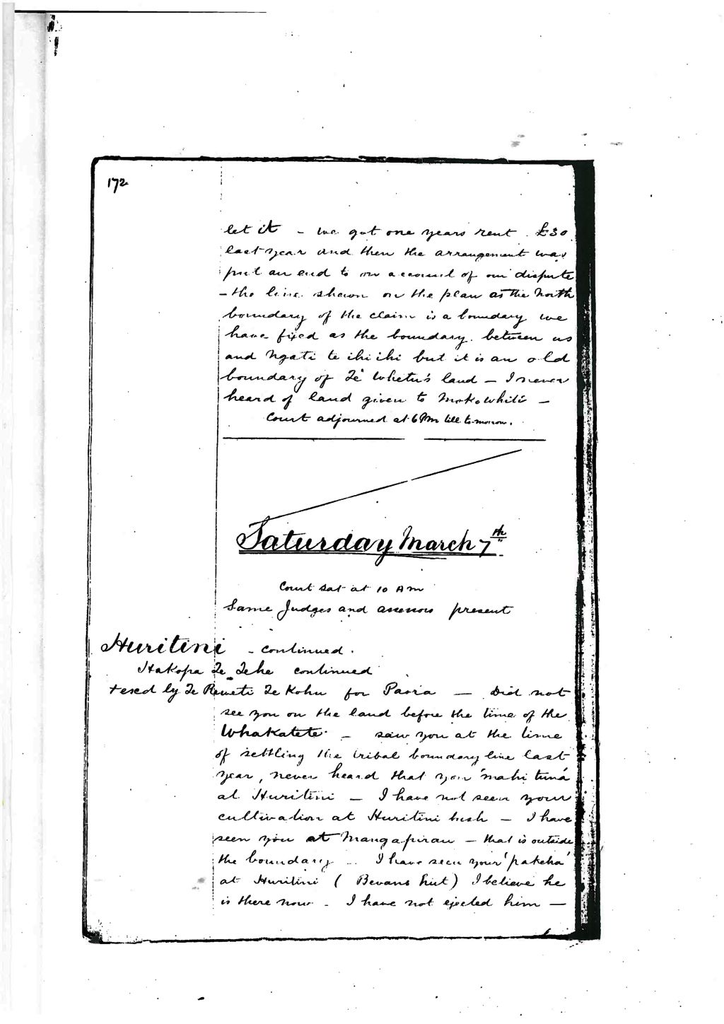 172
let it – we got one years rent . £30
last year and then the arrangement was
put an end to on account of our dispute
– the line shown on the plan as the North
boundary of the claim is a boundary we
have fixed as the boundary between us
and Ngati te ihi ihi but it is an old
boundary of Te Whetu's land – I never
heard of land given to Mokowhiti –
Court adjourned at 6 Pm till tomorrow.
Saturday March 7th
Court sat at 10 Am
Same Judges and assessors present
Huritini – continued.
Hakopa Te Tehe continued
+exed by Te Reweti Te Kohu for Paora – Did not
see you on the land before the time of the
Whakatete – saw you at the time
of settling the tribal boundary line last
year, never heard that you 'mahi tuna'
at Huritini – I have not seen your
cultivation at Huritini bush – I have
seen you at Mangapirau – that is outside
the boundary – I have seen your 'pakeha'
at Huritini ( Bevans ) I believe he
is there now – I have not ejected him –